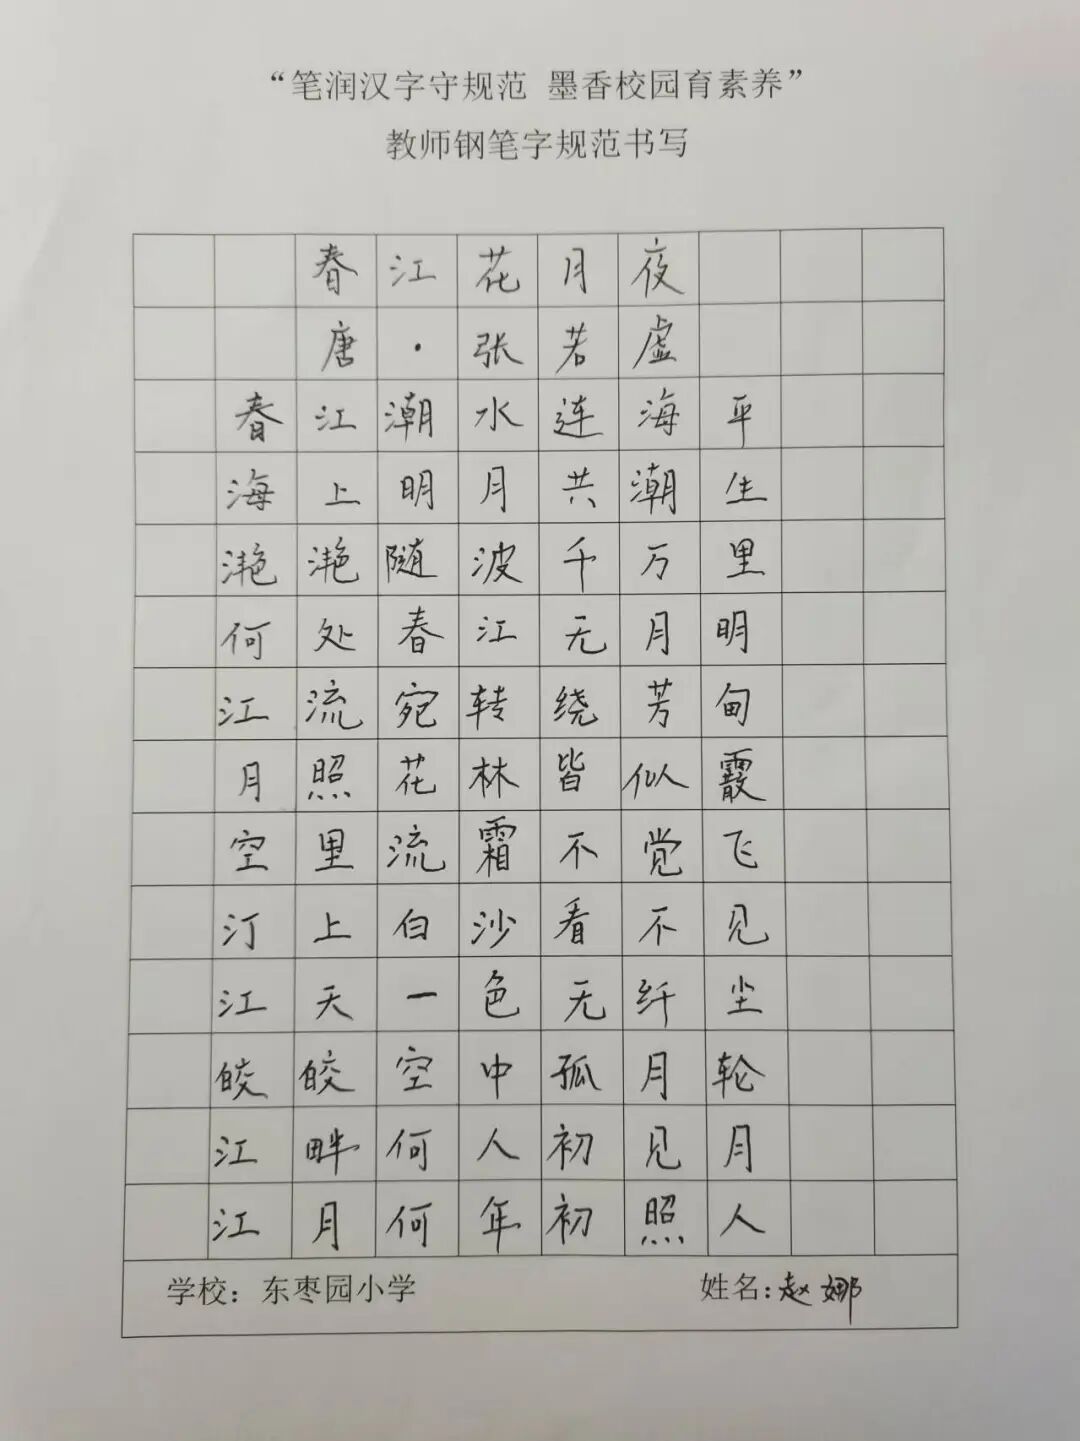 “笔润汉字守规范 墨香校园育素养”
教师钢笔字规范书写
春江花月夜
唐·张若虚
春江潮水连海平
海上明月共潮生
滟滟随波千万里
何处春江无月明
江流宛转绕芳甸
月照花林皆似霰
空里流霜不觉飞
汀上白沙看不见
江天一色无纤尘
皎皎空中孤月轮
江畔何人初见月
江月何年初照人
学校：东枣园小学 姓名：赵娜